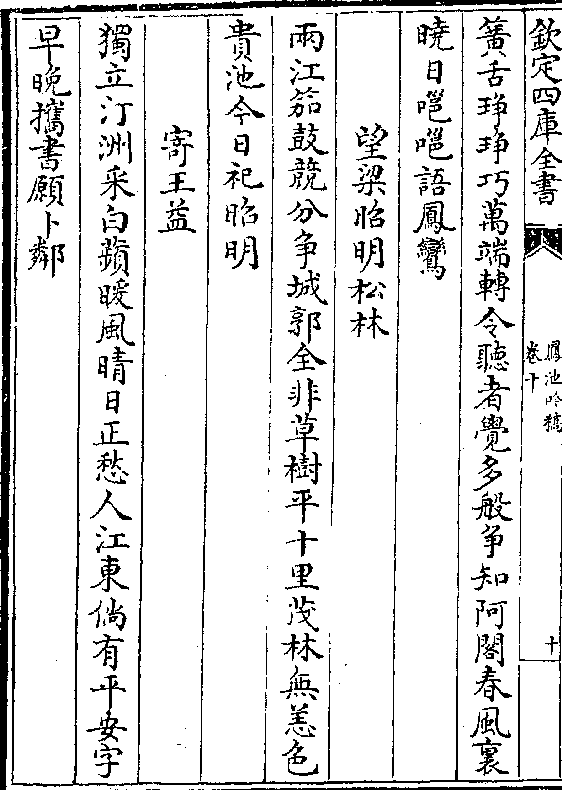 欽定四庫全書
鳳池吟稿
卷十
十
簧舌琤琤巧萬端轉令聽者覺多般争知阿閣春風裏
曉日嗈嗈語鳳鸞
望梁昭明松林
兩江笳鼓競分争城郭全非草樹平十里茂林無恙色
貴池今日祀昭明
寄王益
獨立汀洲采白蘋暖風晴日正愁人江東倘有平安字
早晚攜書願卜鄰